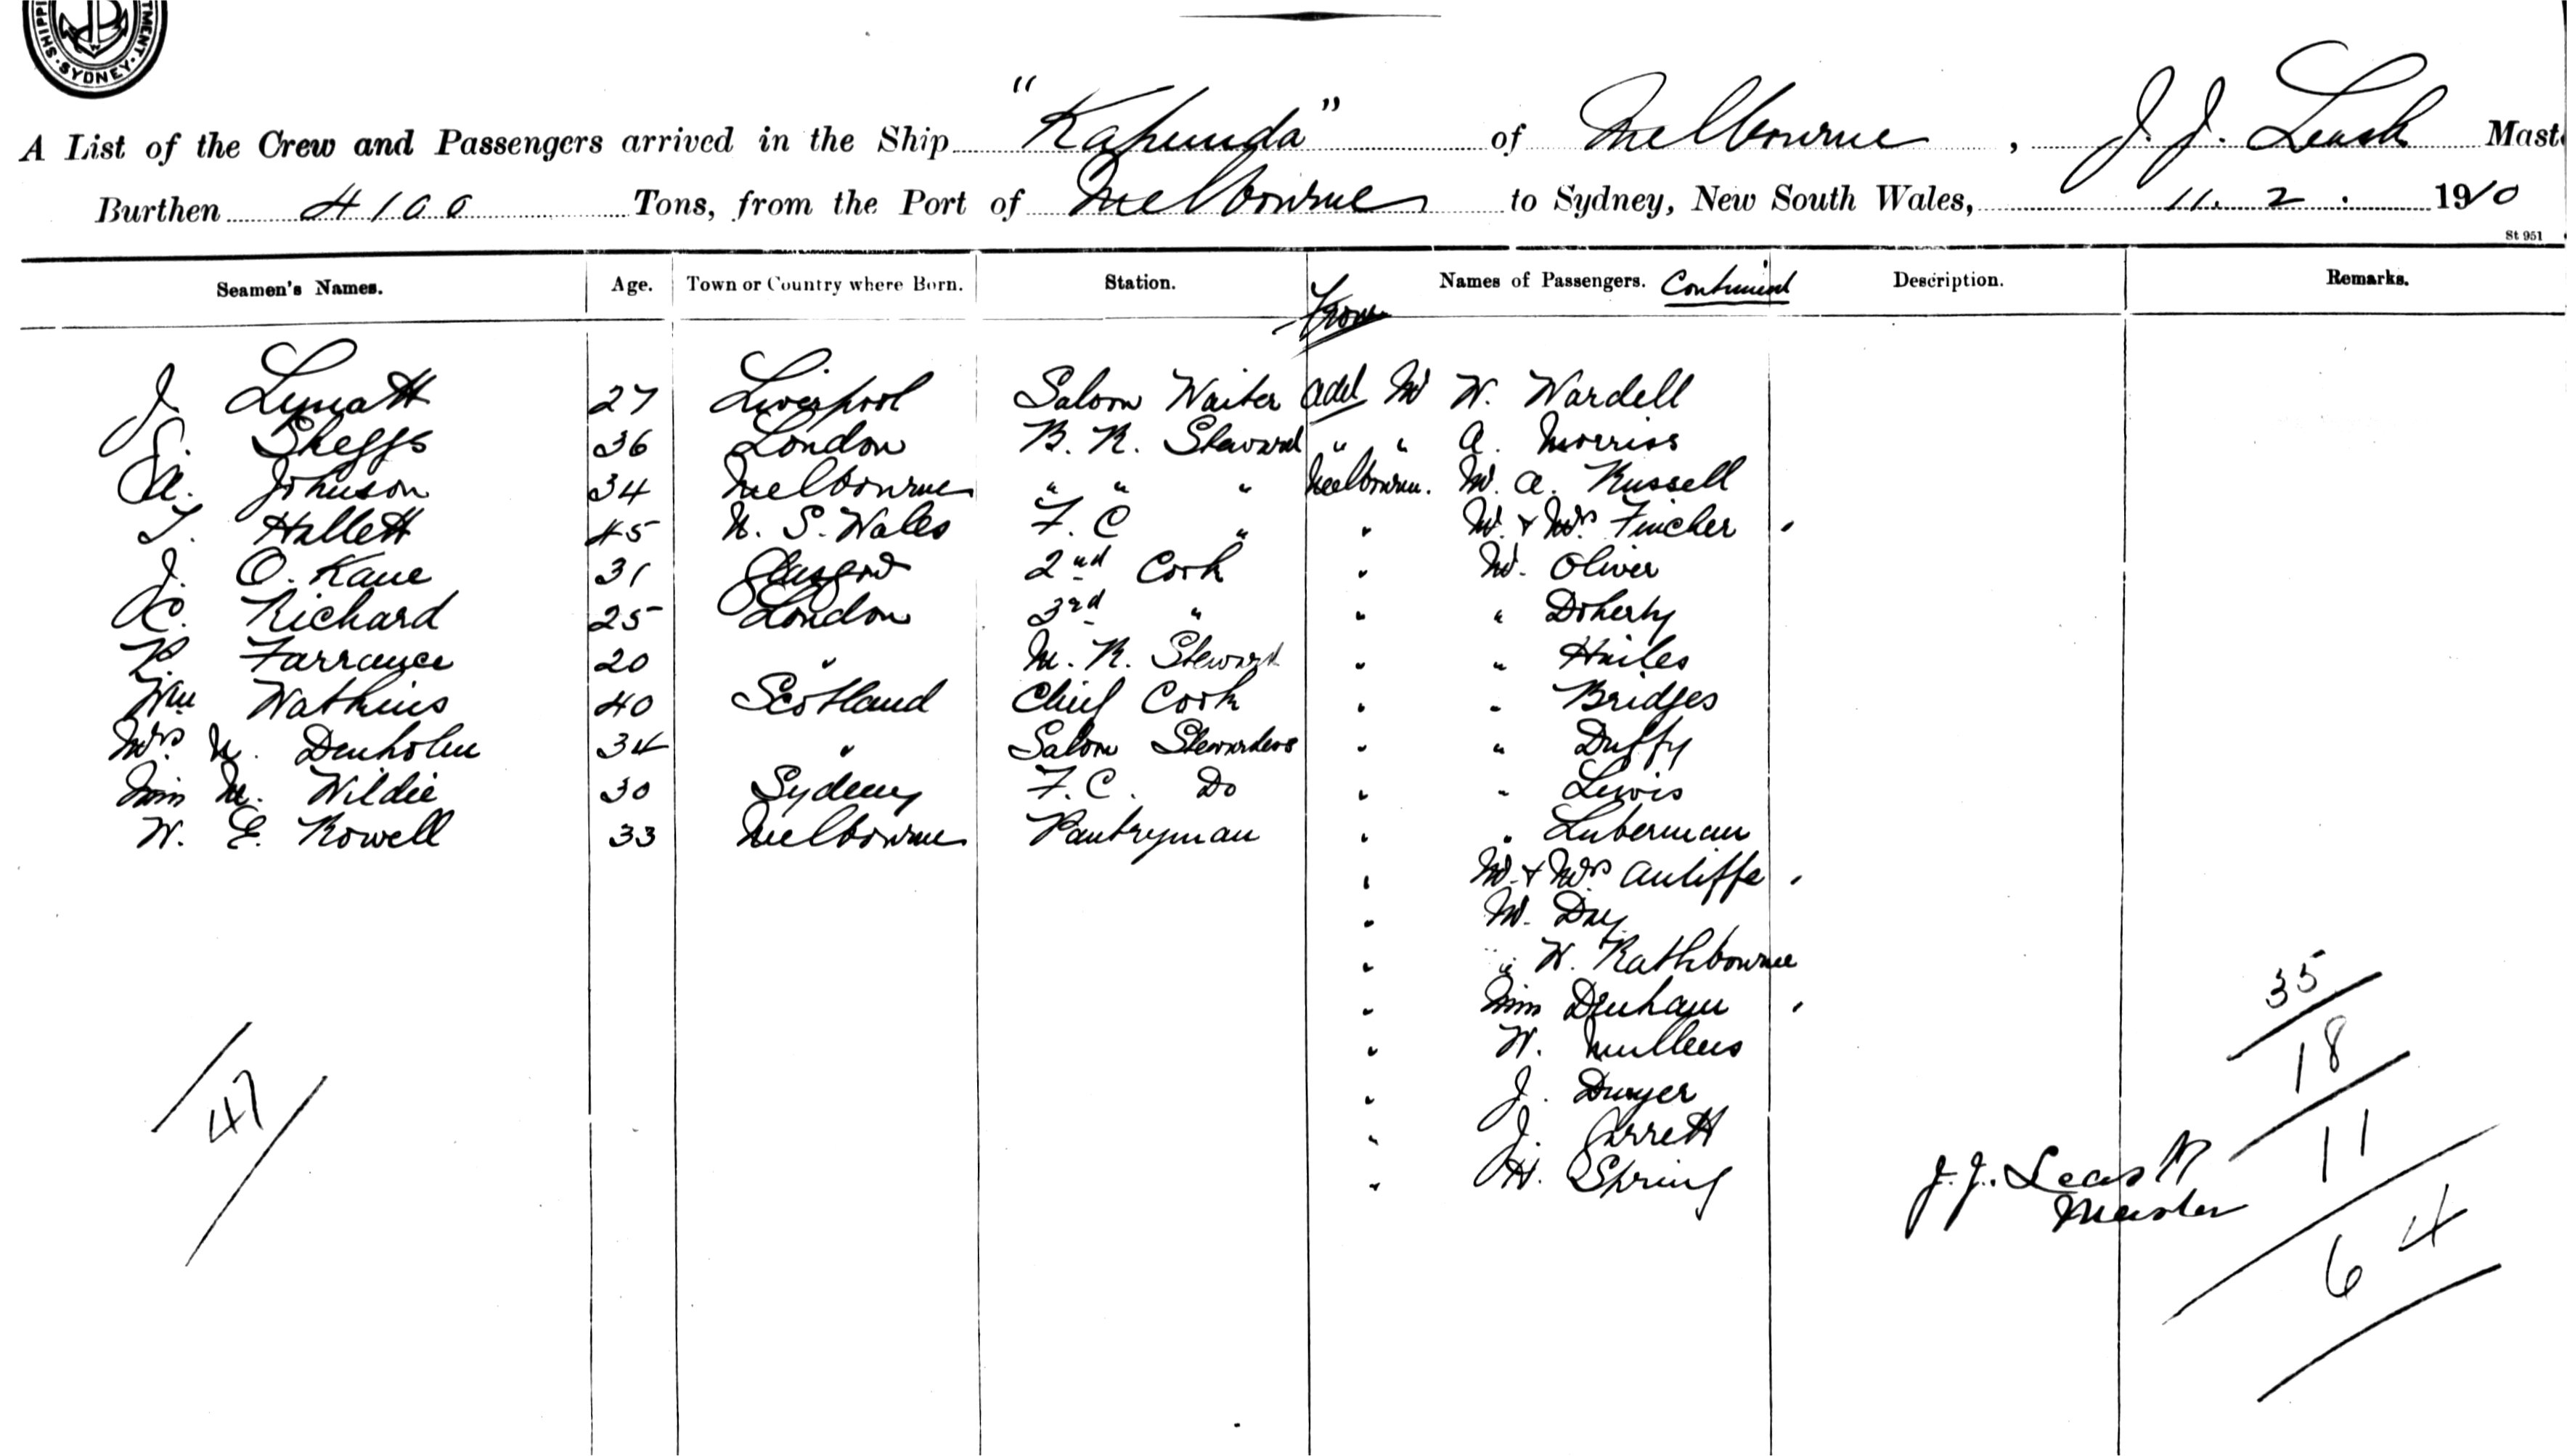 SHIPPI TMENT. SYDNEY.
A List of the Crew and Passengers arrived in the Ship "Kapunda" of Melbourne, J. J. Leask Maste
Burthen 4100 Tons, from the Port of Melbourne to Sydney, New South Wales, 11. 2. 1910
St 951
Seamen's Names. Age. Town or Country where Born. Station. From Names of Passengers. Continued Description. Remarks.
J. Lynatt 27 Liverpool Saloon Waiter Adel Mr W. Wardell
S. Skeggs 36 London B. R. Steward " " A. Morriss
A. Johnson 34 Melbourne " " " Melbourne. Mr. A. Russell
T. Hallett 45 N. S. Wales F. C " " Mr. & Mrs Fincher
J. O. Kane 31 Glasgow 2nd Cook " Mr. Oliver
C. Richard 25 London 3rd " " " Doherty
P. Farrance 20 " M. R. Steward " " Hailes
Wm Watkins 40 Scotland Chief Cook " " Bridges
Mrs N. Denholm 34 " Saloon Stewardess " " Duffy
Miss M. Wildie 30 Sydney F. C. Do " " Lewis
W. E. Rowell 33 Melbourne Pantryman " " Luberman
" Mr. & Mrs Auliffe
" Mr. Day
" " W. Rathbourne
" Miss Denham
" W. Mullens
" J. Dwyer
" J. Garrett
" H. Spring
47
35
18
11
J. J. Leask
Master
64